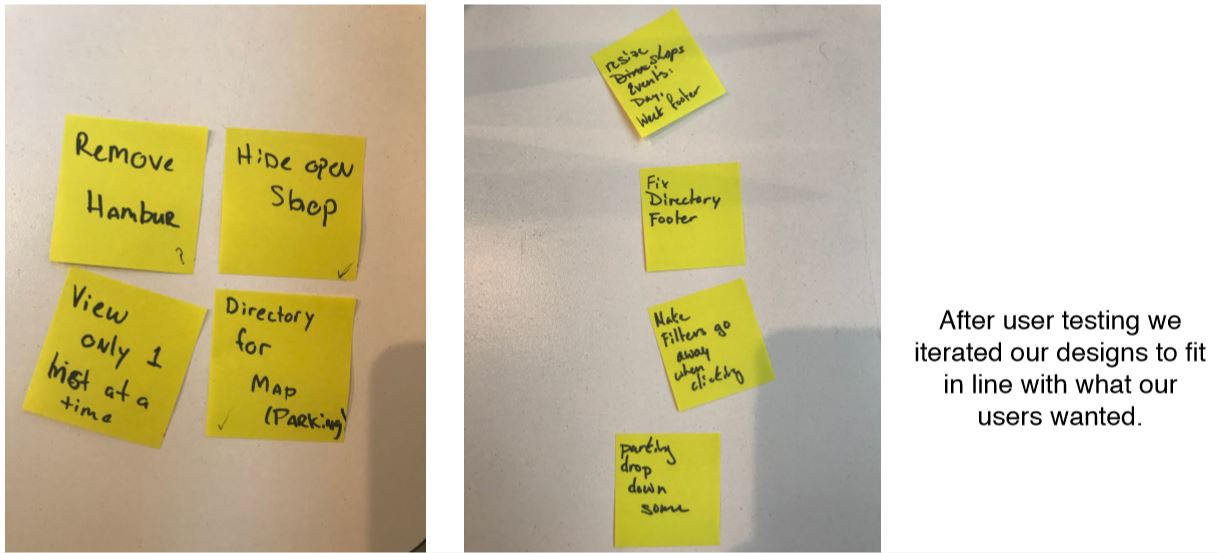 Remove
Hambur
?
Hide open
Shop
✓
View
only 1
list at a
time
Directory
for
Map
(Parking)
✓
resize
shops
Events:
Day,
Week footer
Fix
Directory
Footer
Make
Filters go
away
when
clicking
parking
drop
down
some
After user testing we
iterated our designs to fit
in line with what our
users wanted.